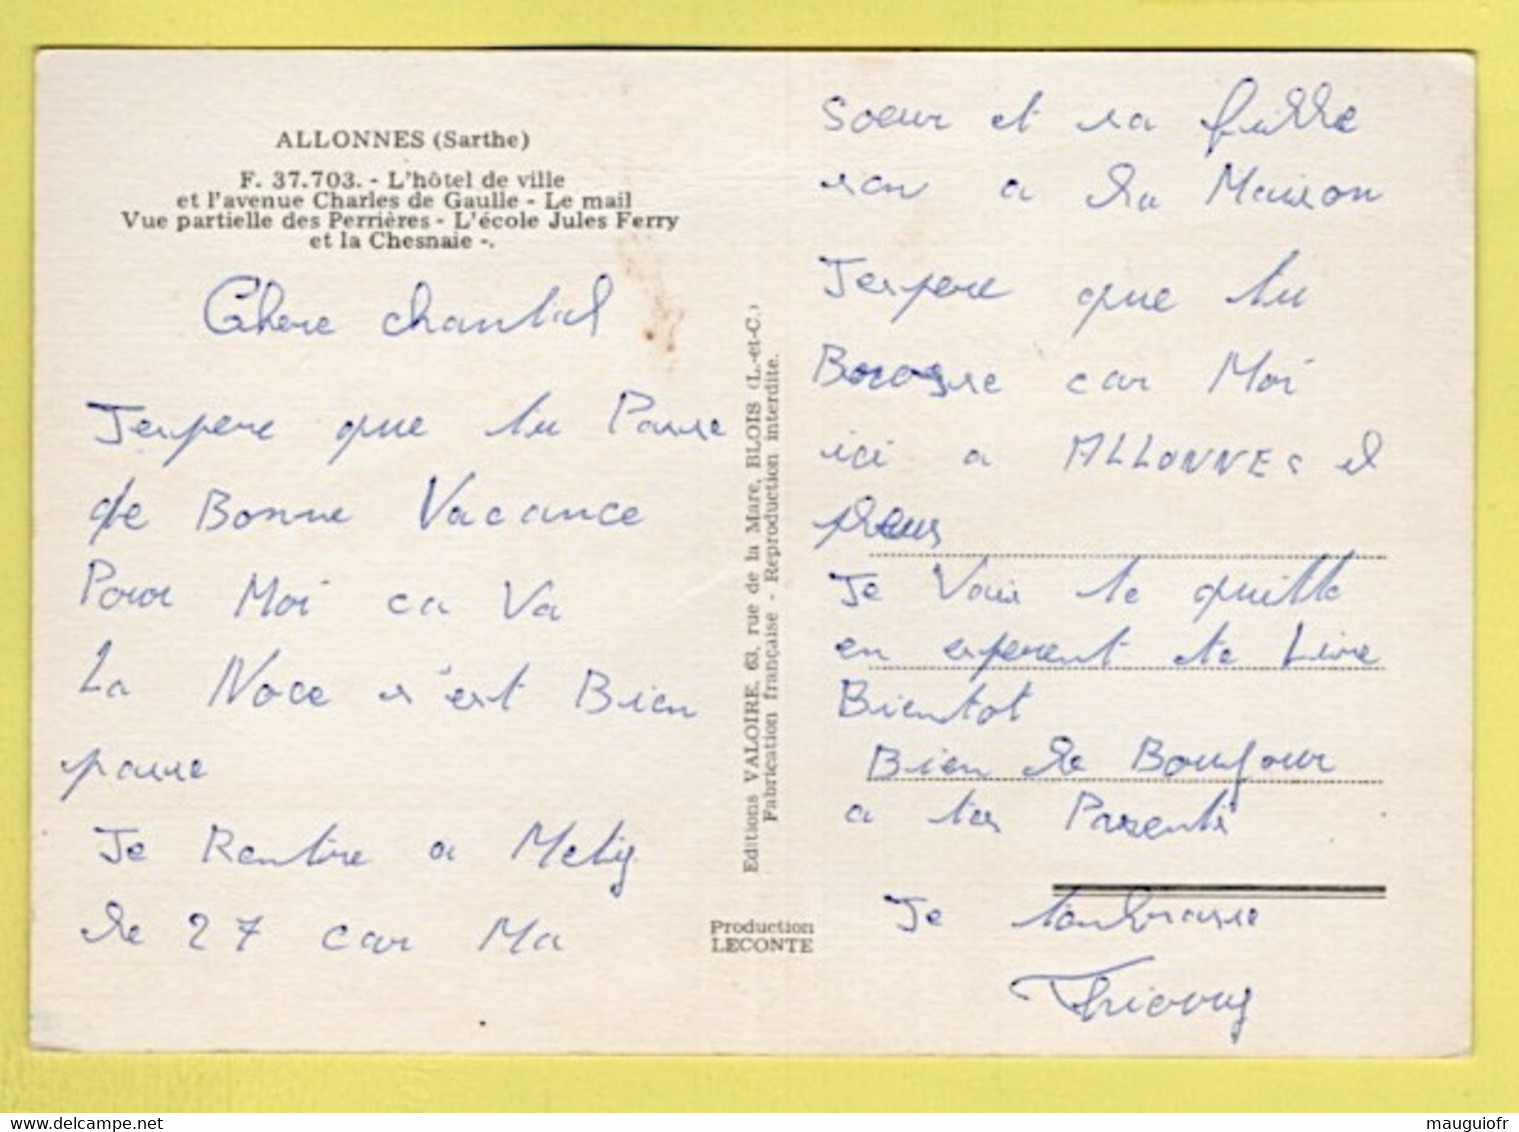 ALLONNES (Sarthe)
F. 37.703. - L'hôtel de ville
et l'avenue Charles de Gaulle - Le mail
Vue partielle des Perrières - L'école Jules Ferry
et la Chesnaie -.
Chere chantal
Jespere que tu Passe
de Bonne Vacance
Pour Moi ca Va
La Noce s'est Bien
passe
Je Rentre a Metig
le 27 car Ma
Editions VALOIRE, 63, rue de la Mare, BLOIS (L.-et-C.)
Fabrication française - Reproduction interdite.
Production
LECONTE
soeur et sa fille
son a la Maison
Jespere que tu
car Moi
ici a ALLONNES il
pleus
Je Vais te quitte
en esperent te Lire
Bientot
Bien le Bonjour
a tes Parents
Je tembrasse
Thierry
mauguiofr